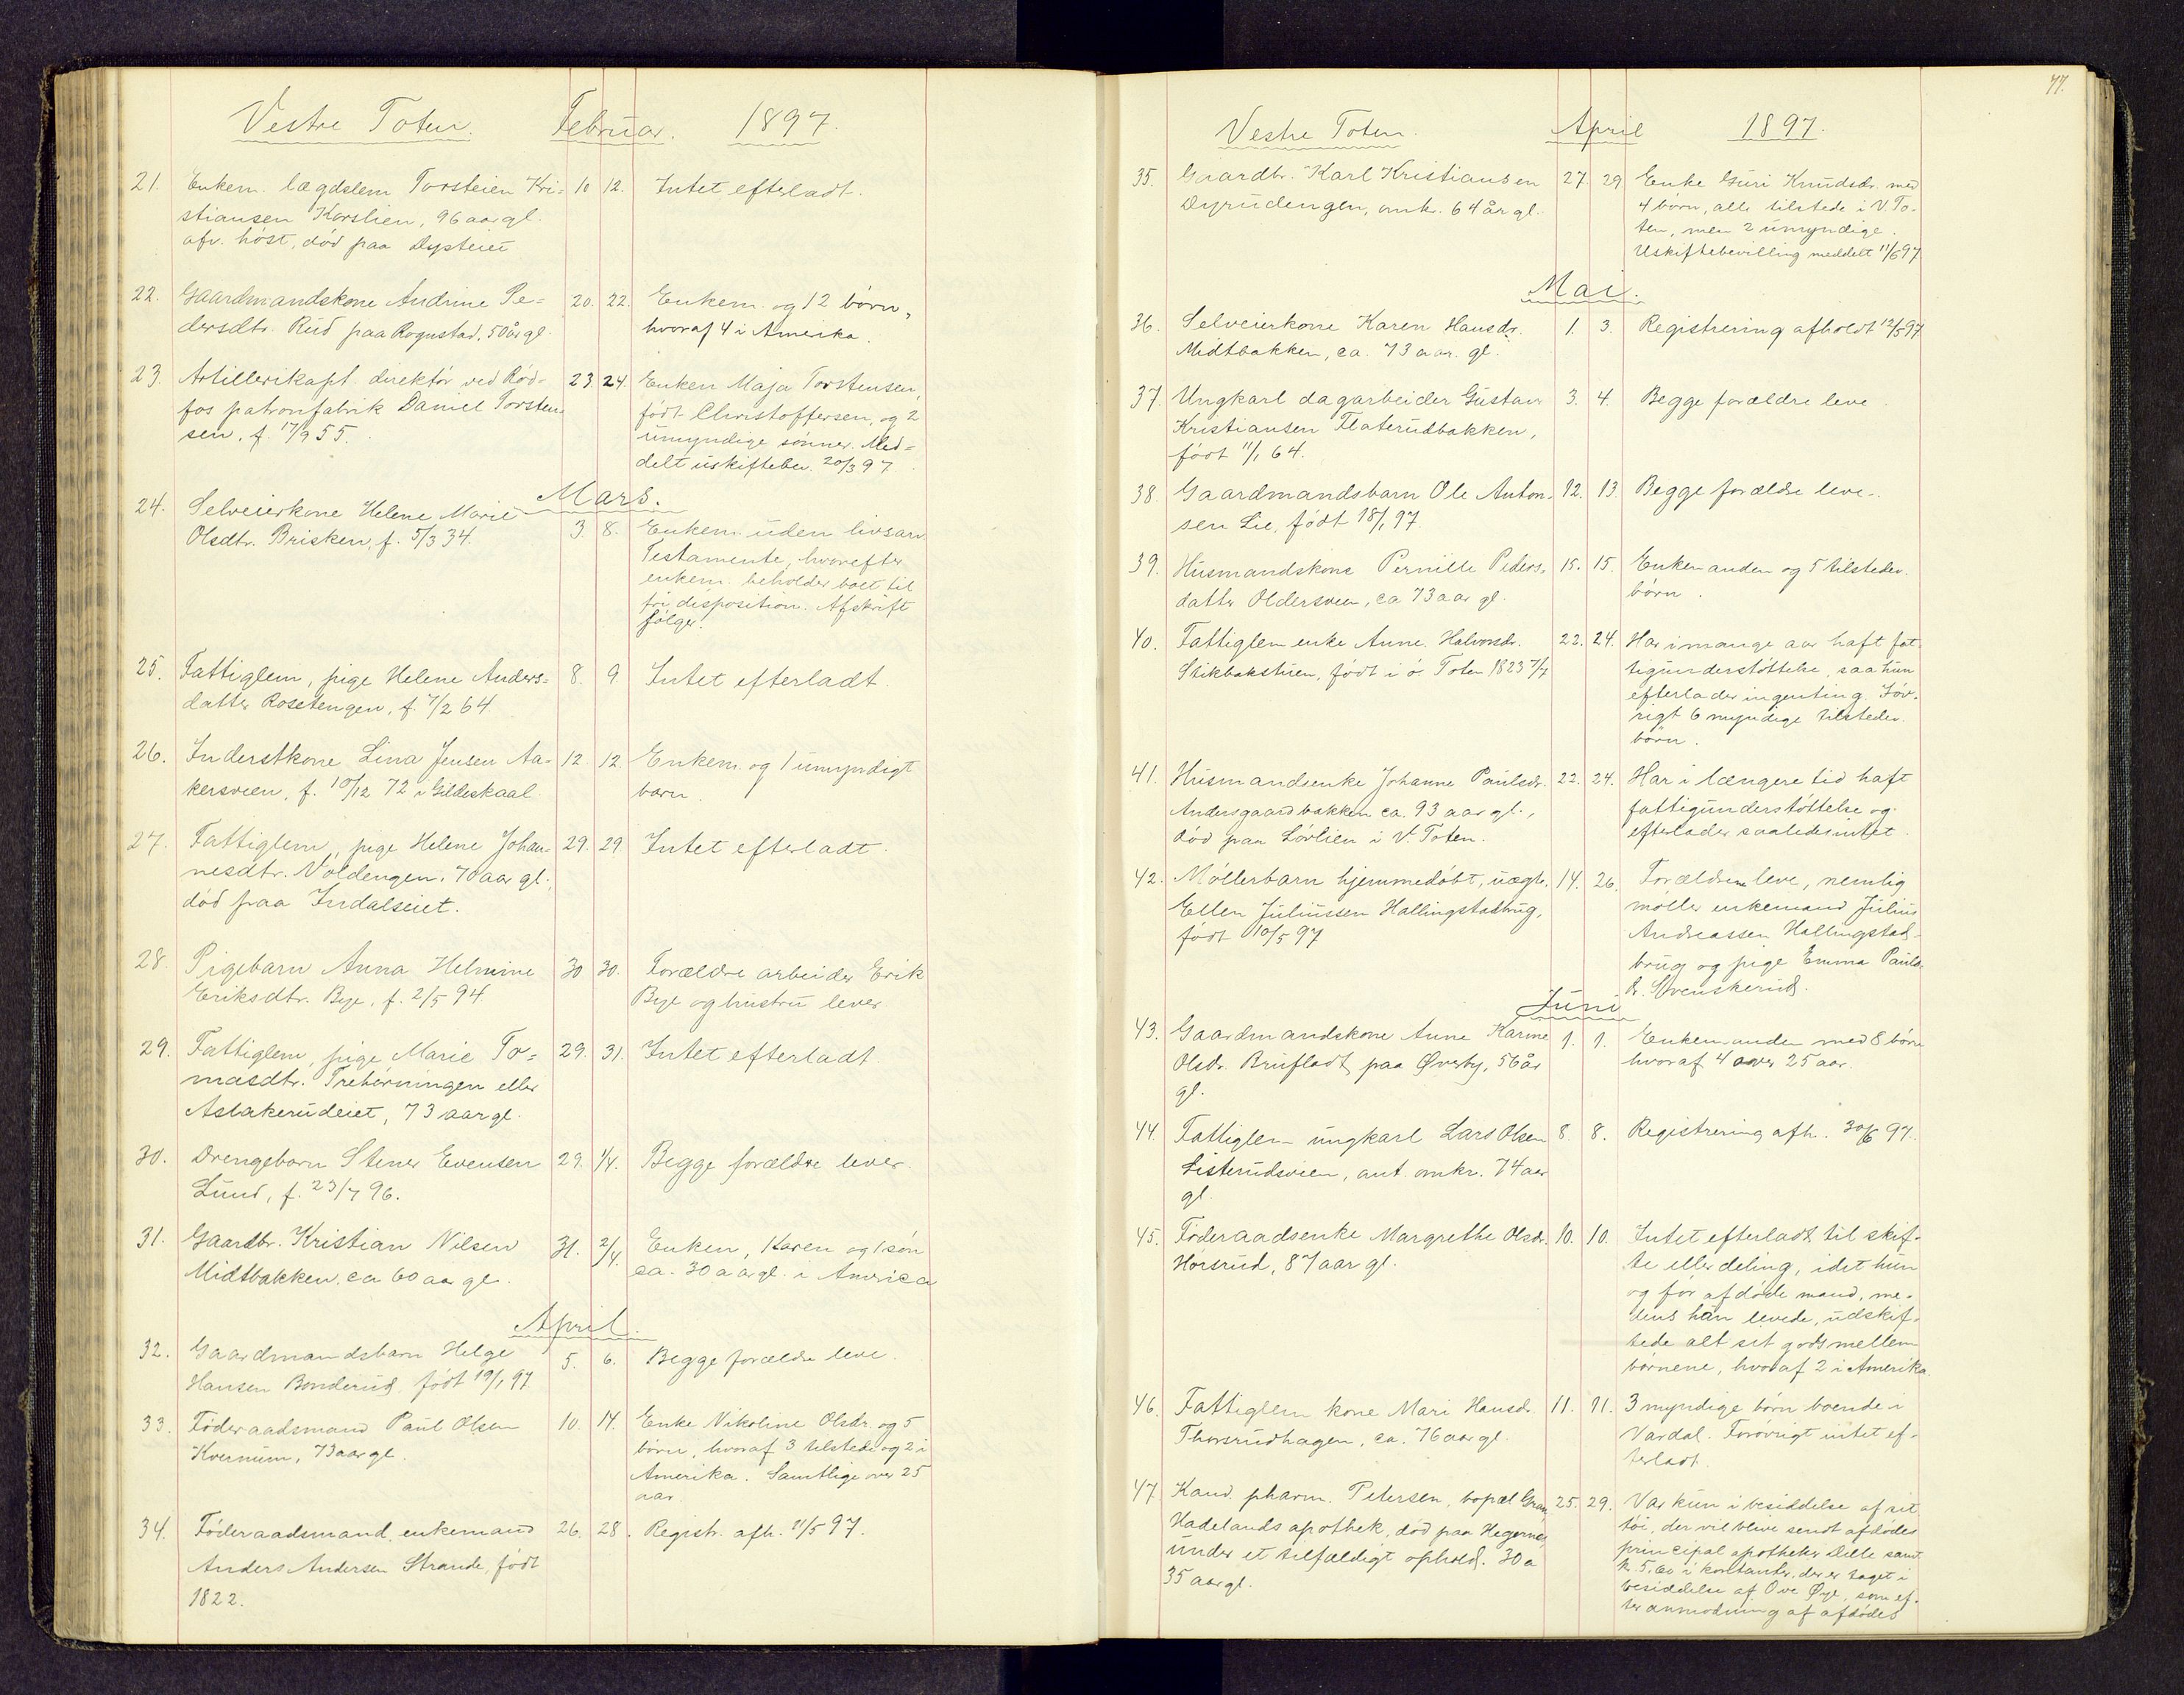 Vestre Toten. Februar. 1897.
21. Enkem. lægdslem Torsteien Kri= 10 12. Intet efterladt.
stiansen Korslien, 96 aar gl.
afv. høst, død paa Dysteiet
22. Gaardmandskone Andrine Pe= 20. 22. Enkem. og 12 børn,
dersdtr. Rud paa Rognstad, 50 år gl. hvoraf 4 i Amerika.
23. Artillerikapt. direktør ved Rød= 23 24. Enken Maja Torstensen,
fos patronfabrik Daniel Torsten= født Christoffersen, og 2
sen, f. 17/9 55. umyndige sønner. Med=
delt uskiftebev. 20/3 97.
Mars.
24. Selveierkone Helene Marie
Olsdtr. Brisken, f. 5/3 34. 3 8. Enkem. uden livsarv.
Testamente, hvorefter
enkem. beholder boet til
fri disposition. Afskrift
følger.
25. Fattiglem, pige Helene Anders= 8. 9 Intet efterladt.
datter Rosetengen, f. 7/2 64.
26. Inderstkone Lina Jensen Aa= 12 12. Enkem. og 1 umyndigt
kersveen, f. 10/12 72 i Gildeskaal barn.
27. Fattiglem, pige Helene Johan= 29. 29 Intet efterladt.
nesdtr. Voldengen, 70 aar gl.,
død paa Indalseiet.
28. Pigebarn Anna Helmine 30 30. Forældre arbeider Erik
Eriksdtr. Bye, f. 2/5 94. Bye og hustru lever.
29. Fattiglem, pige Marie To= 29. 31. Intet efterladt.
masdtr. Trehørningen eller
Aslakerudeiet, 73 aar gl.
30. Drengebarn Stener Evensen 29. 1/4. Begge forældre lever.
Lund, f. 23/7 96.
31. Gaardbr. Kristian Nilsen 31. 2/4. Enken, Karen og 1 søn
Midtbakken, ca 60 aar gl. ca. 30 aar gl. i America
April.
32. Gaardmandsbarn Helge 5. 6. Begge forældre leve.
Hansen Bonderud født 19/1 97.
33. Føderaadsmand Paul Olsen 10. 14. Enke Nikoline Olsdr. og 5
Kvernum, 73 aar gl. børn, hvoraf 3 tilstede og 2 i
Amerika. Samtlige over 25
aar.
34. Føderaadsmand, enkemand 26. 28. Registr. afh. 11/5 97.
Anders Andersen Strande, født
1822.
77.
Vestre Toten. April 1897.
35. Gaardbr. Karl Kristiansen 27. 29 Enke Guri Knudsdr. med
Dyrudengen, omkr. 64 år gl. 4 børn, alle tilstede i V. To=
ten, men 2 umyndige.
Uskiftebevilling meddelt 11/6 97
Mai.
36. Selveierkone Karen Hansdr. 1. 3. Registrering afholdt 12/5 97
Midtbakken, ca. 73 aar gl.
37. Ungkarl dagarbeider Gustav 3. 4. Begge forældre leve
Kristiansen Flaterudbakken,
født 11/1 64.
38. Gaardmandsbarn Ole Anton= 12. 13. Begge forældre leve.
sen Lie, født 18/1 97.
39. Husmandskone Pernille Peders= 15. 15. Enkemanden og 5 tilstedev.
datter Oldersveen, ca 73 aar gl. børn.
40. Fattiglem enke Anne Halvorsdr. 22. 24. Har i mange aar haft fat=
Stikbakstuen, født i Ø. Toten 1823 7/7 tigunderstøttelse, saa hun
efterlader ingenting. Føv=
rigt 6 myndige tilstedev.
børn.
41. Husmandsenke Johanne Paulsdr. 22. 24. Har i længere tid haft
Andersgaardbakken ca. 93 aar gl., fattigunderstøttelse og
død paa Løvlien i V. Toten. efterlader saaledes intet.
42. Møllerbarn hjemmedøbt, uægte, 14. 26. Forældrene leve, nemlig
Ellen Juliussen Hallingstadbrug, møller enkemand Julius
født 10/5 97 Andreassen Hallingstad=
brug og pige Emma Pauls=
dr. Svenskerud.
Juni
43. Gaardmandskone Anne Karine 1. 1. Enkemanden med 8 børn
Olsdr. Brufladt, paa Øverby, 56 år hvoraf 4 over 25 aar.
gl.
44. Fattiglem ungkarl Lars Olsen 8. 8. Registrering afh. 30/6 97.
Listerudsveen, ant. omkr. 74 aar
gl.
45. Føderaadsenke Margrethe Olsdr. 10. 10. Intet efterladt til skif=
Horsrud, 87 aar gl. te eller deling, idet hun
og før afdøde mand, me=
dens han levede, udskif=
tede alt sit gods mellem
børnene, hvoraf 2 i Amerika
46. Fattiglem kone Mari Hansdr. 11. 11. 3 myndige børn boende i
Thorsrudhagen, ca. 76 aar gl. Vardal. Forøvrigt intet ef=
terladt.
47. Kand. pharm. Petersen, bopæl Gran 25. 29. Var kun i besiddelse af sit
Hadelands apothek, død paa Hegernes tøi, der vil blive sendt afdødes
under et tilfældigt ophold. 30 a principal apotheker Dille samt
35 aar gl. k. 5,60 i kontanter, der er taget i
besiddelse af Ove Øye, som ef=
ter anmodning af afdødes